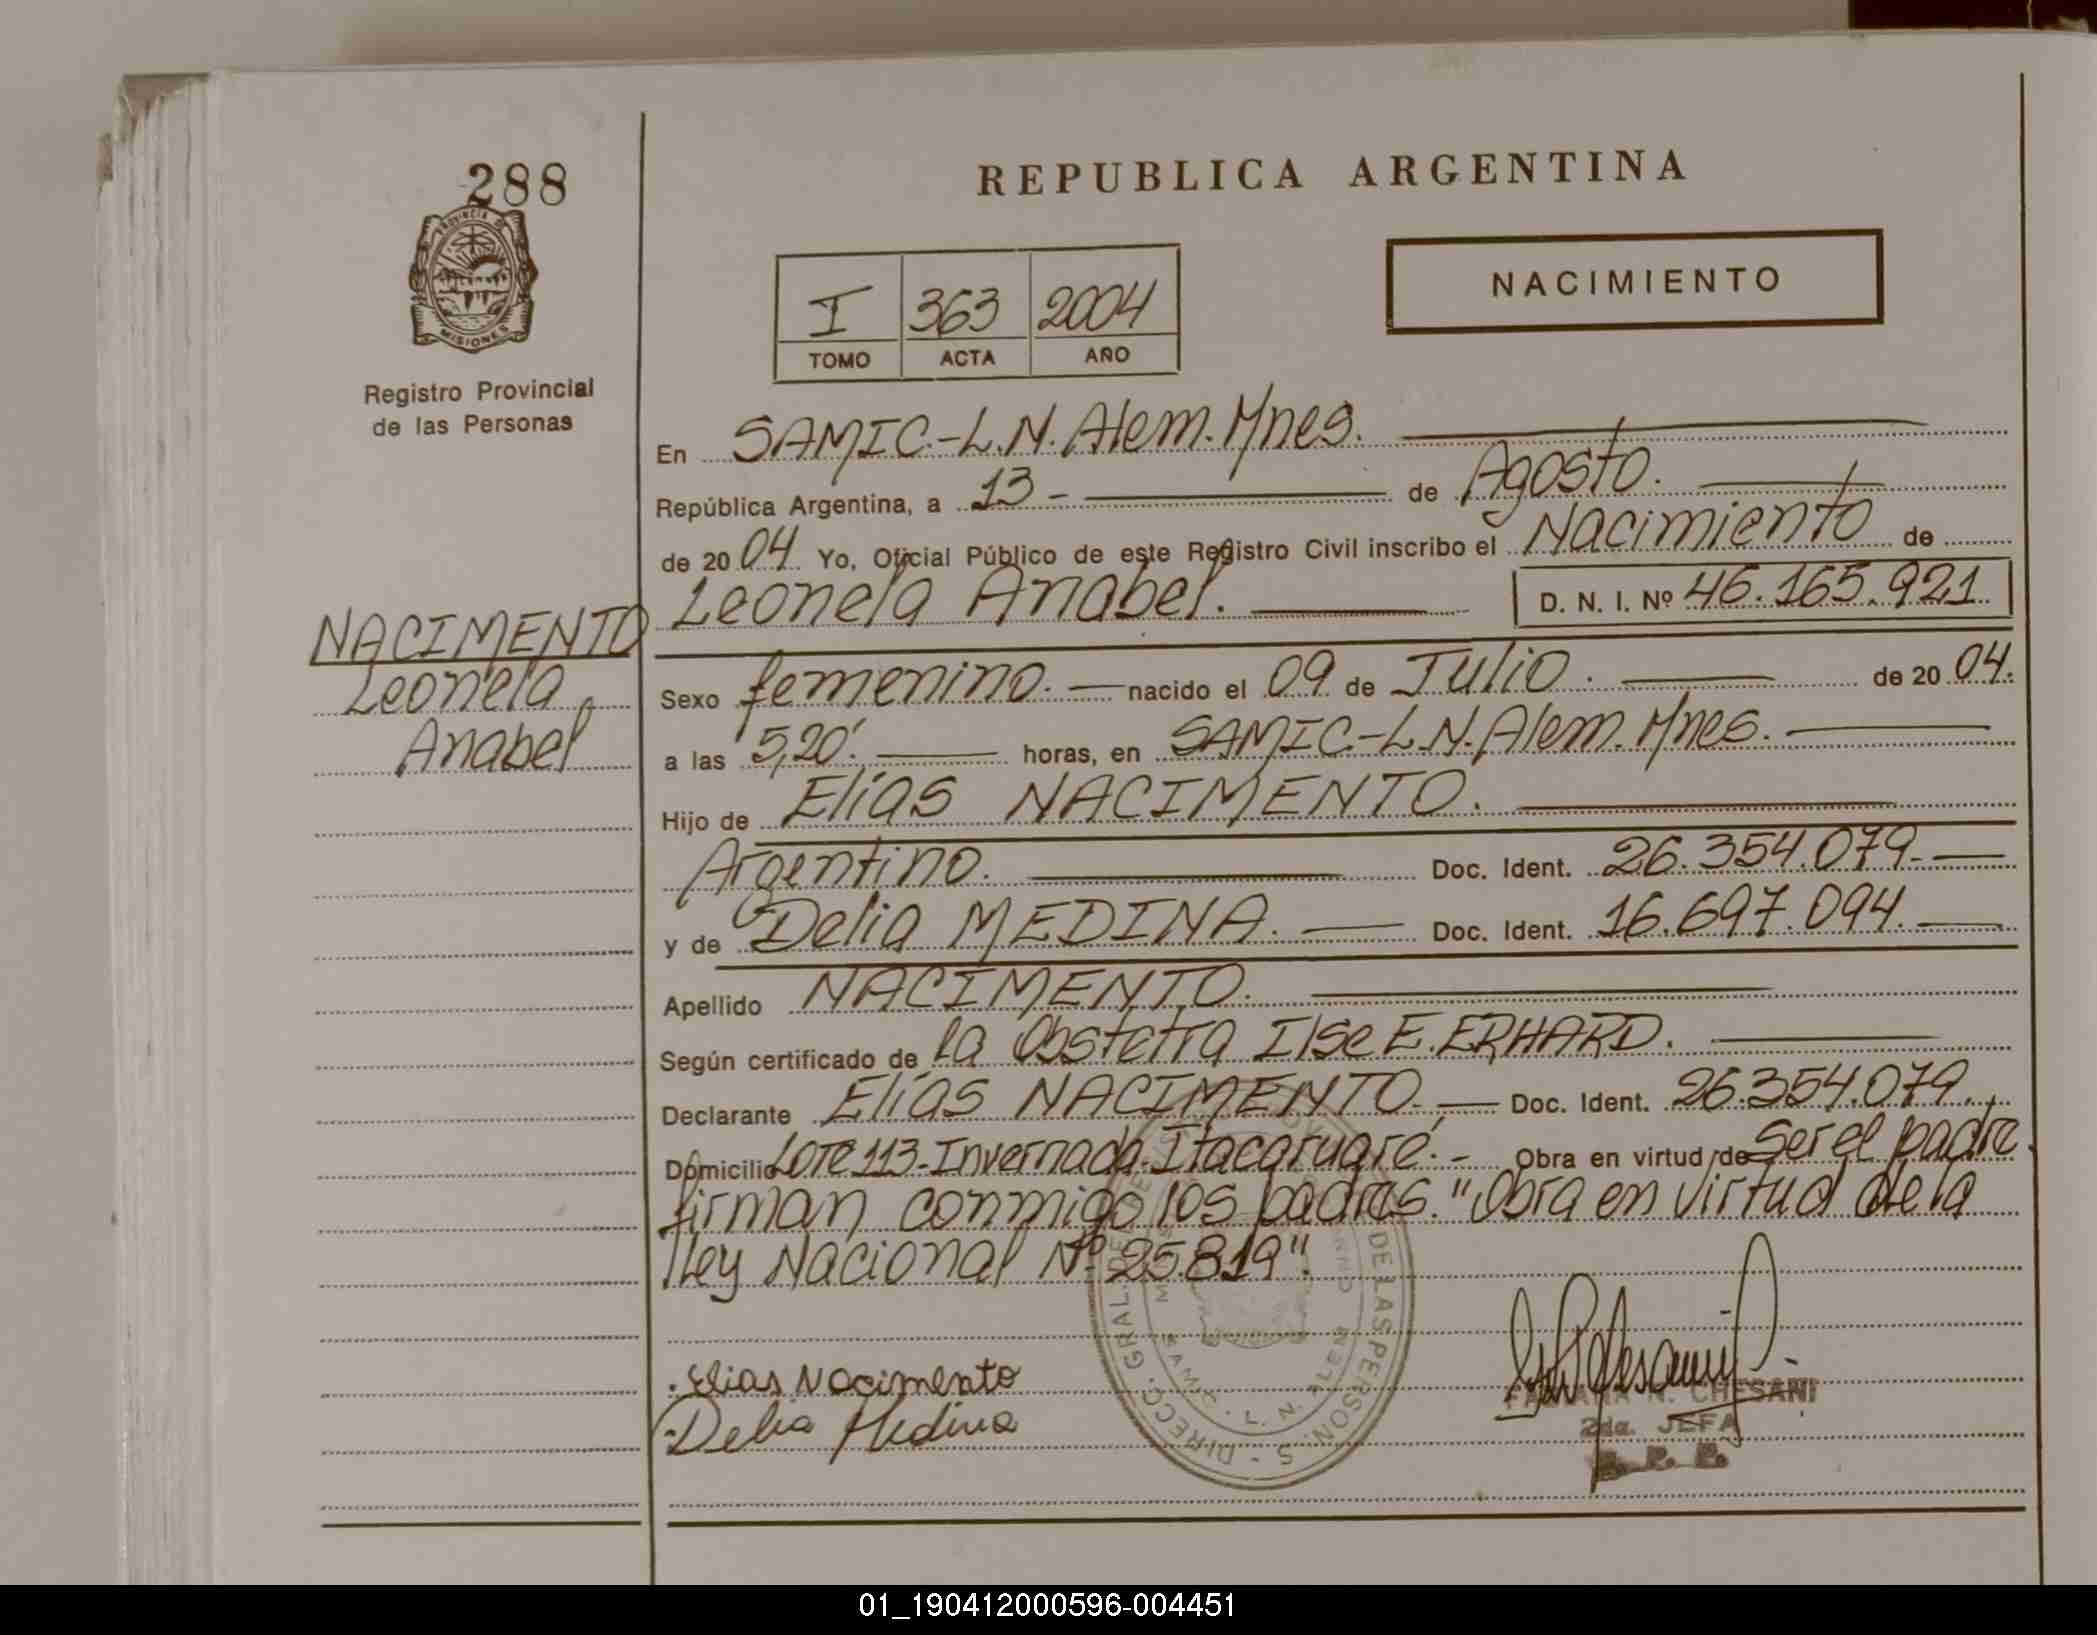 288
PROVINCIA DE
MISIONES
Registro Provincial
de las Personas
REPUBLICA ARGENTINA
NACIMIENTO
I 363 2004
TOMO ACTA AÑO
En SAMIC.-L.N. Alem. Mnes.
República Argentina, a 13- de Agosto.
de 20 04. Yo, Oficial Público de este Registro Civil inscribo el Nacimiento de
Leonela Anabel. D. N. I. Nº 46.165.921.
NACIMENTO
Leonela
Anabel
Sexo femenino. nacido el 09 de Julio. de 20 04.
a las 5,20'. horas, en SAMIC-L.N. Alem. Mnes.
Hijo de Elías NACIMENTO.
Argentino. Doc. Ident. 26.354.079.
y de Delia MEDINA. Doc. Ident. 16.697.094.
Apellido NACIMENTO.
Según certificado de la Obstetra Ilse E. ERHARD.
Declarante Elías NACIMENTO. Doc. Ident. 26.354.079.
Domicilio Lote 113-Invernada-Itacaruaré.- Obra en virtud de Ser el padre.
firman conmigo los padres. "Obra en virtud de la
Ley Nacional Nº 25.819".
Elias Nacimento
Delia Medina
DIRECC. GRAL. DE LAS PERSONAS
SAMIC - L. N. ALEM
N. CHESANI
2da. JEFA
R. P. P.
01_190412000596-004451